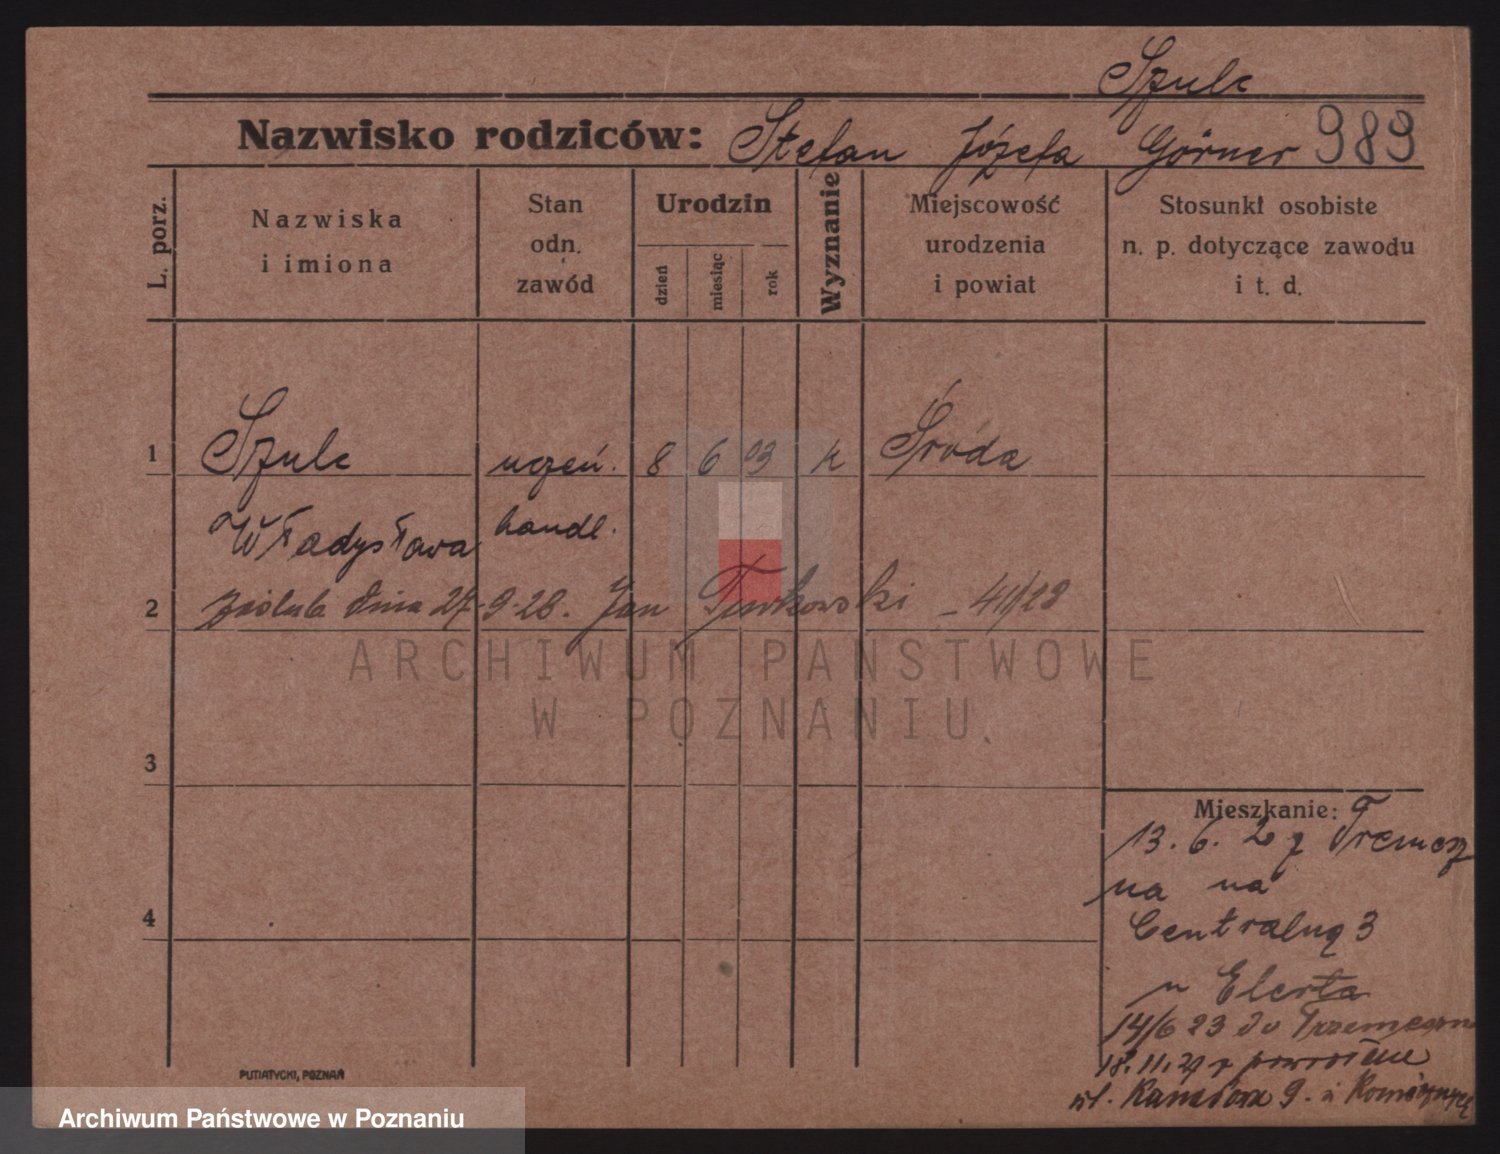 Szulc
Nazwisko rodziców: Stefan Józefa Görner 989
L. porz.
Nazwiska
i imiona
Stan
odn.
zawód
Urodzin
dzień
miesiąc
rok
Wyznanie
Miejscowość
urodzenia
i powiat
Stosunki osobiste
n. p. dotyczące zawodu
i t. d.
1 Szulc uczeń. 8 6 03 k Środa
Władysława handl.
2 zaślub. dnia 27-9-28. Jan Turkowski - 411/28
ARCHIWUM PAŃSTWOWE
W POZNANIU
3
Mieszkanie:
13. 6. 2 z Tremesz
na na
4
Centralną 3
u Elerta
14/6 23 do Trzemeszna
18.11.29 z powrotem
ul. 9.
PUTIATYCKI, POZNAŃ
Archiwum Państwowe w Poznaniu